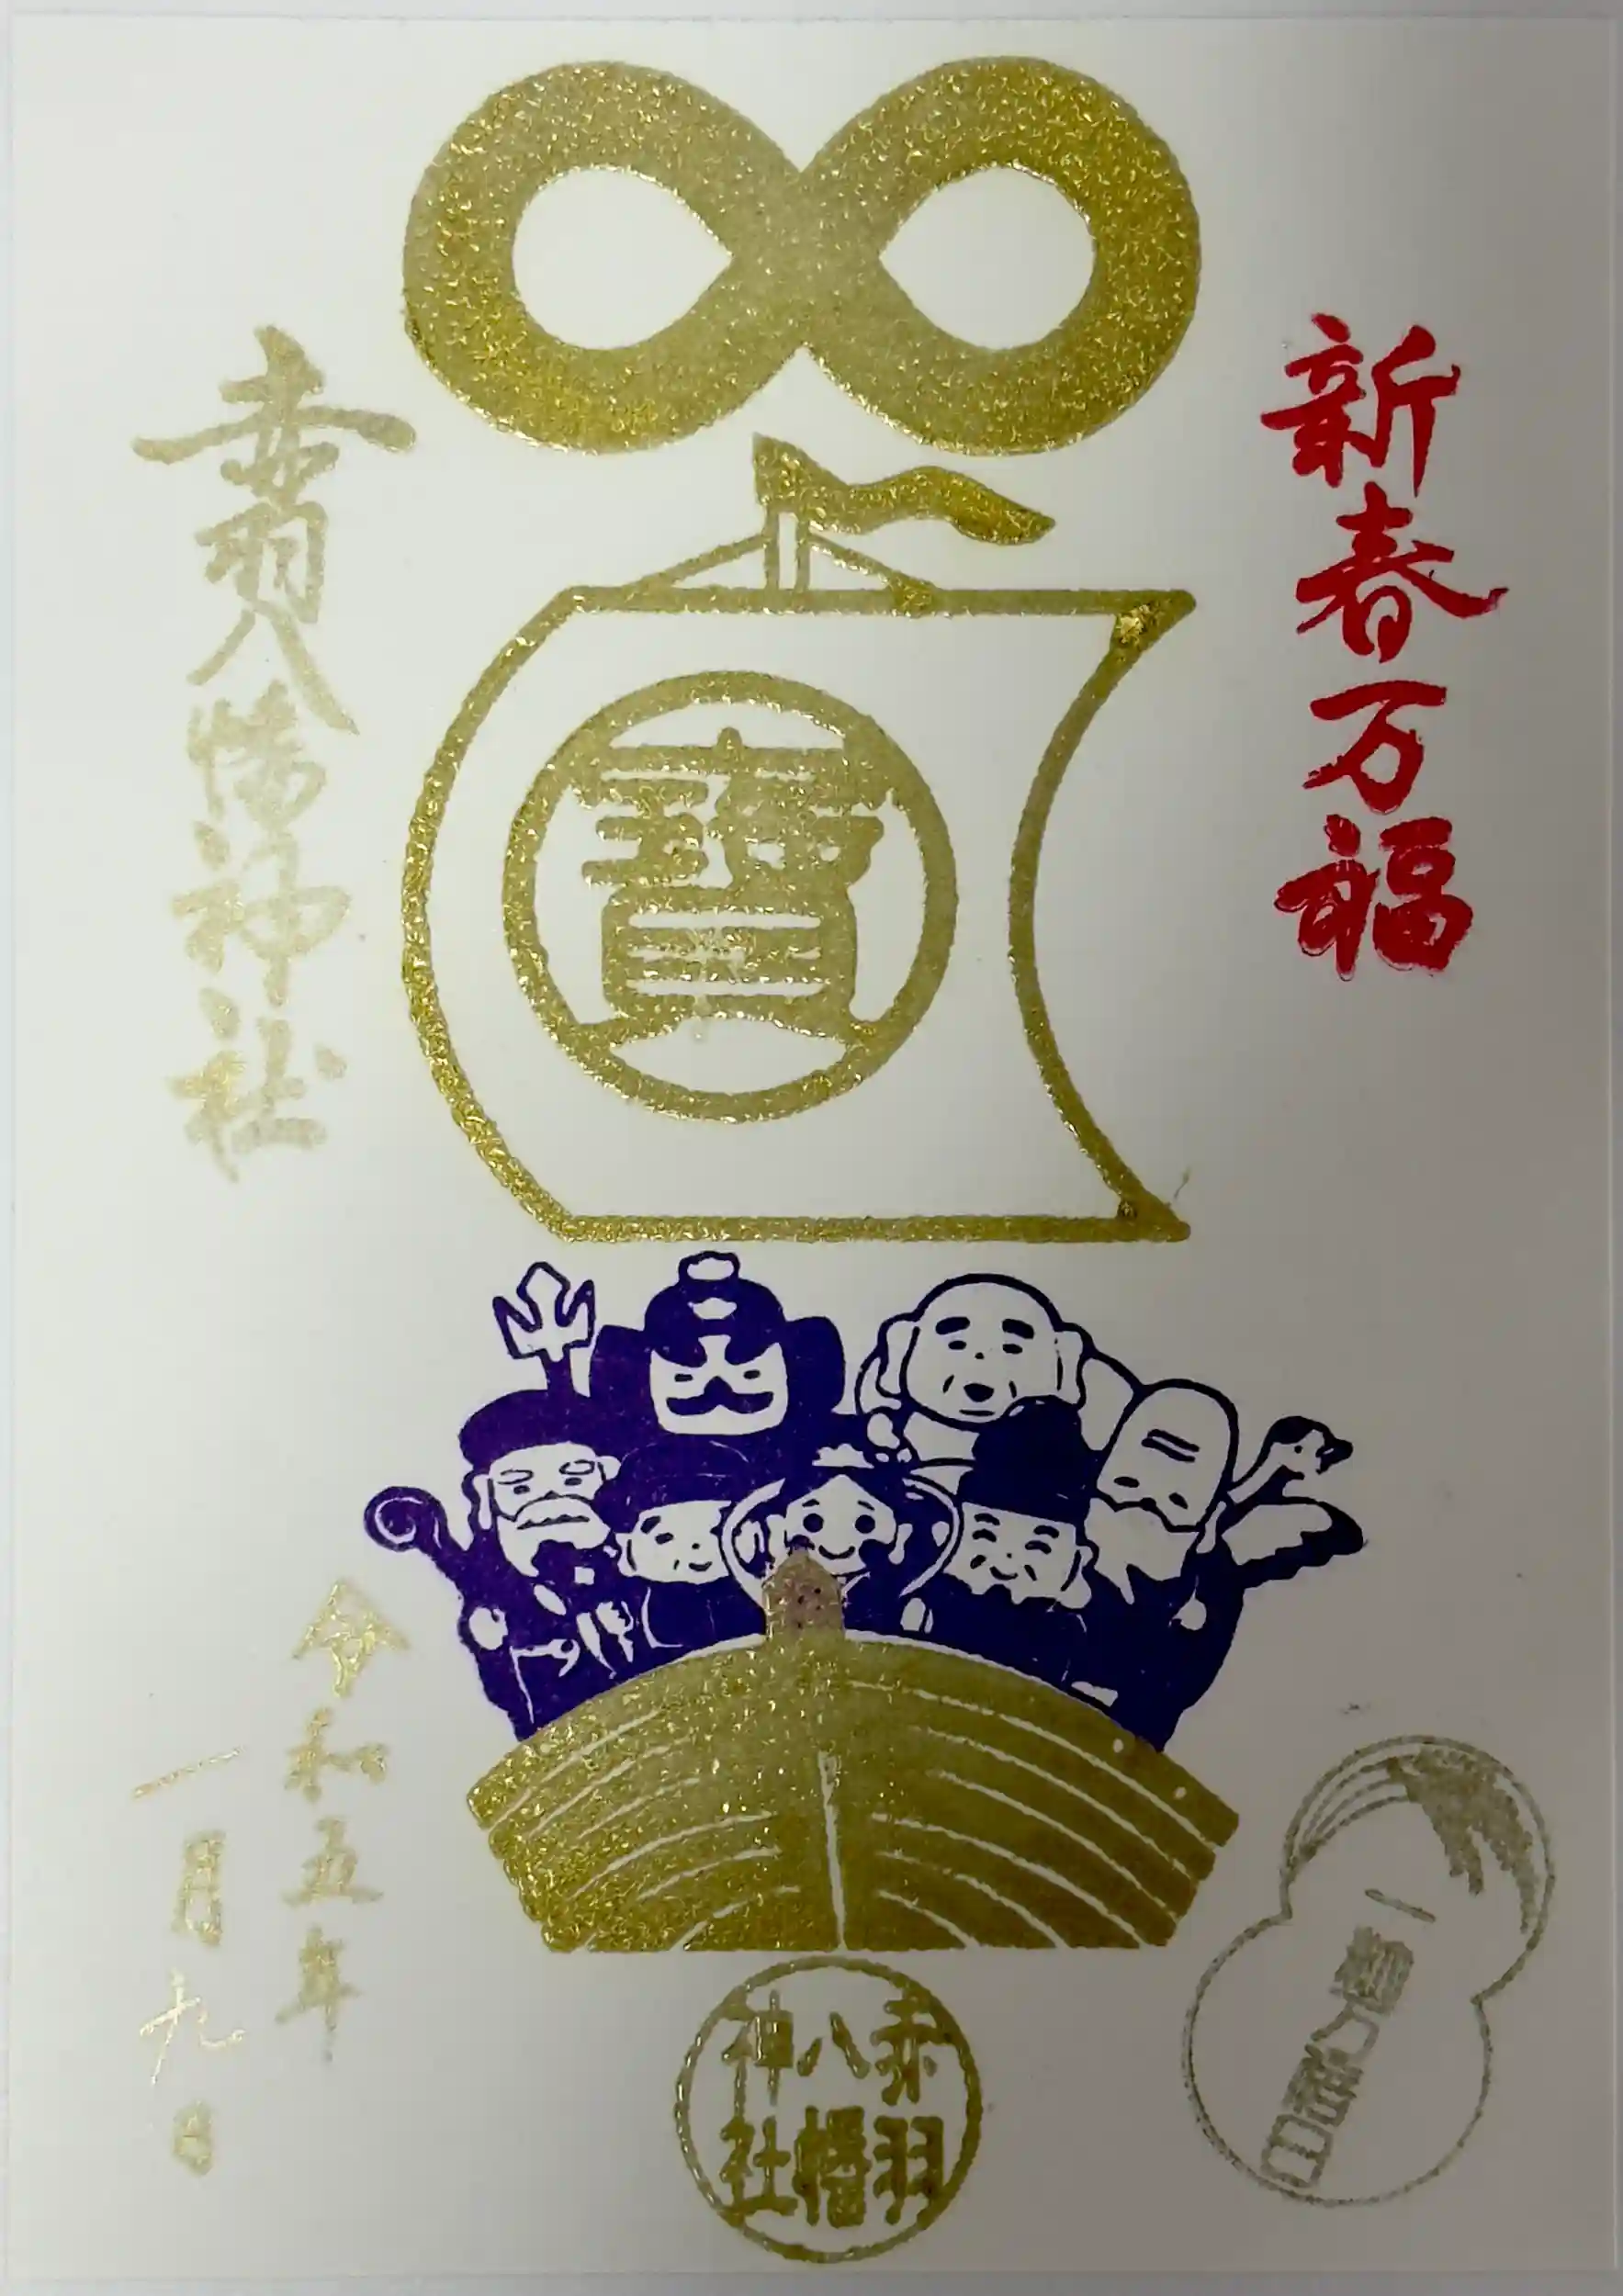 新春万福
寶
赤羽八幡神社
令和五年
一月九日
赤羽
八幡
神社
一粒万倍日